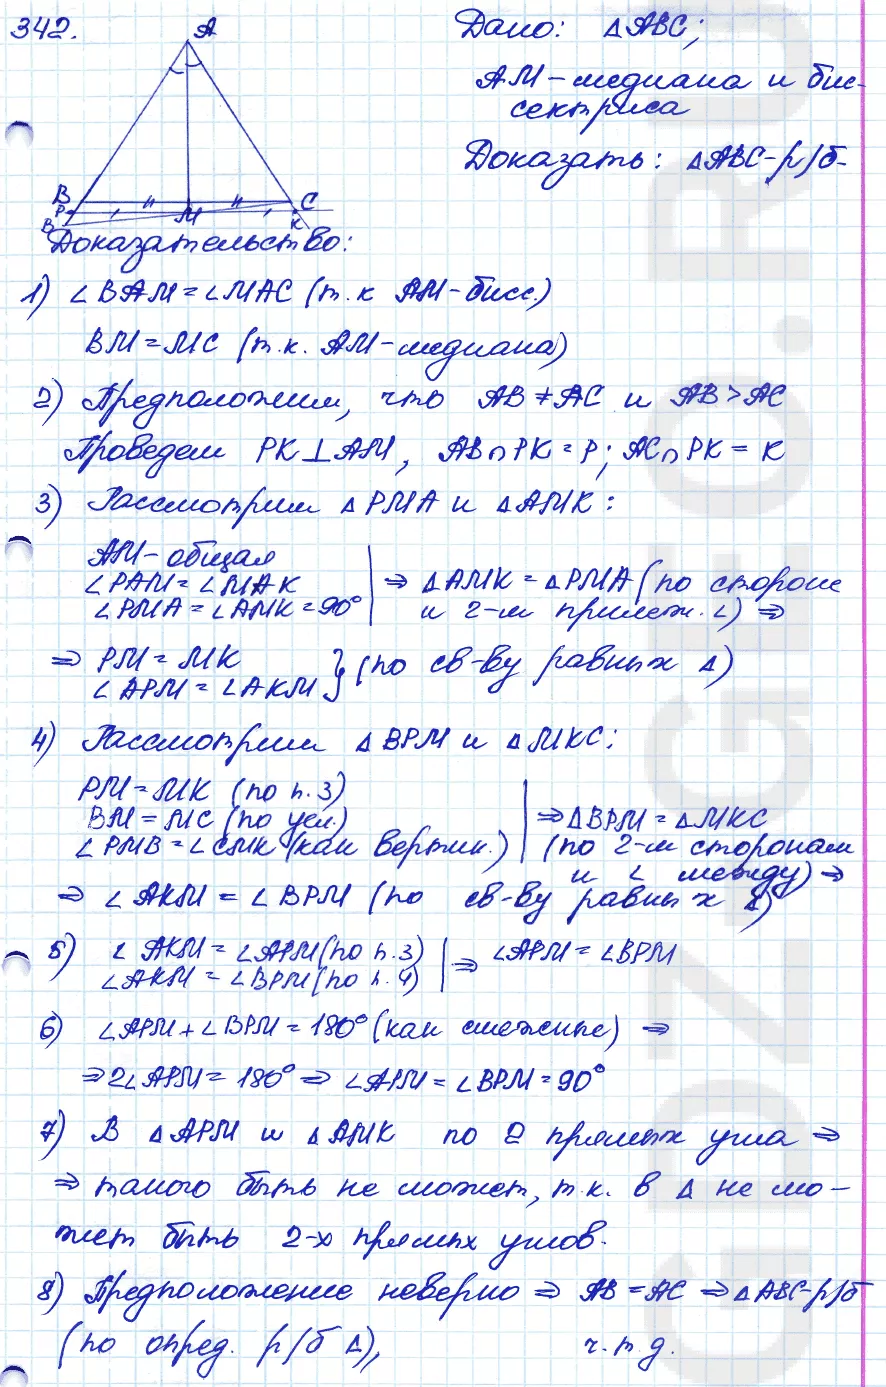 342.
A
B
P
B
M
C
K
Дано: △ABC;
AM – медиана и бис-
сектриса
Доказать: △ABC – р/б.
Доказательство:
1) ∠BAM = ∠MAC (т.к AM – бисс.)
BM = MC (т.к. AM – медиана)
2) Предположим, что AB ≠ AC и AB > AC
Проведем PK ⊥ AM, AB ∩ PK = P; AC ∩ PK = K
3) Рассмотрим △PMA и △AMK:
AM – общая
∠PAM = ∠MAK
∠PMA = ∠AMK = 90°
⇒ △AMK = △PMA (по стороне
и 2-м прилеж. ∠) ⇒
⇒ PM = MK
∠APM = ∠AKM } (по св-ву равных △)
4) Рассмотрим △BPM и △MKC:
PM = MK (по п. 3)
BM = MC (по усл.)
∠PMB = ∠CMK (как вертик.)
⇒ △BPM = △MKC
(по 2-м сторонам
и ∠ между) ⇒
⇒ ∠AKM = ∠BPM (по св-ву равных △)
5) ∠AKM = ∠APM (по п. 3)
∠AKM = ∠BPM (по п. 4)
⇒ ∠APM = ∠BPM
6) ∠APM + ∠BPM = 180° (как смежные) ⇒
⇒ 2∠APM = 180° ⇒ ∠APM = ∠BPM = 90°
7) В △APM и △AMK по 2 прямых угла ⇒
⇒ такого быть не может, т.к. в △ не мо-
жет быть 2-х прямых углов.
8) Предположение неверно ⇒ AB = AC ⇒ △ABC – р/б
(по опред. р/б △),
ч.т.д.
GDZ-GEO.RU